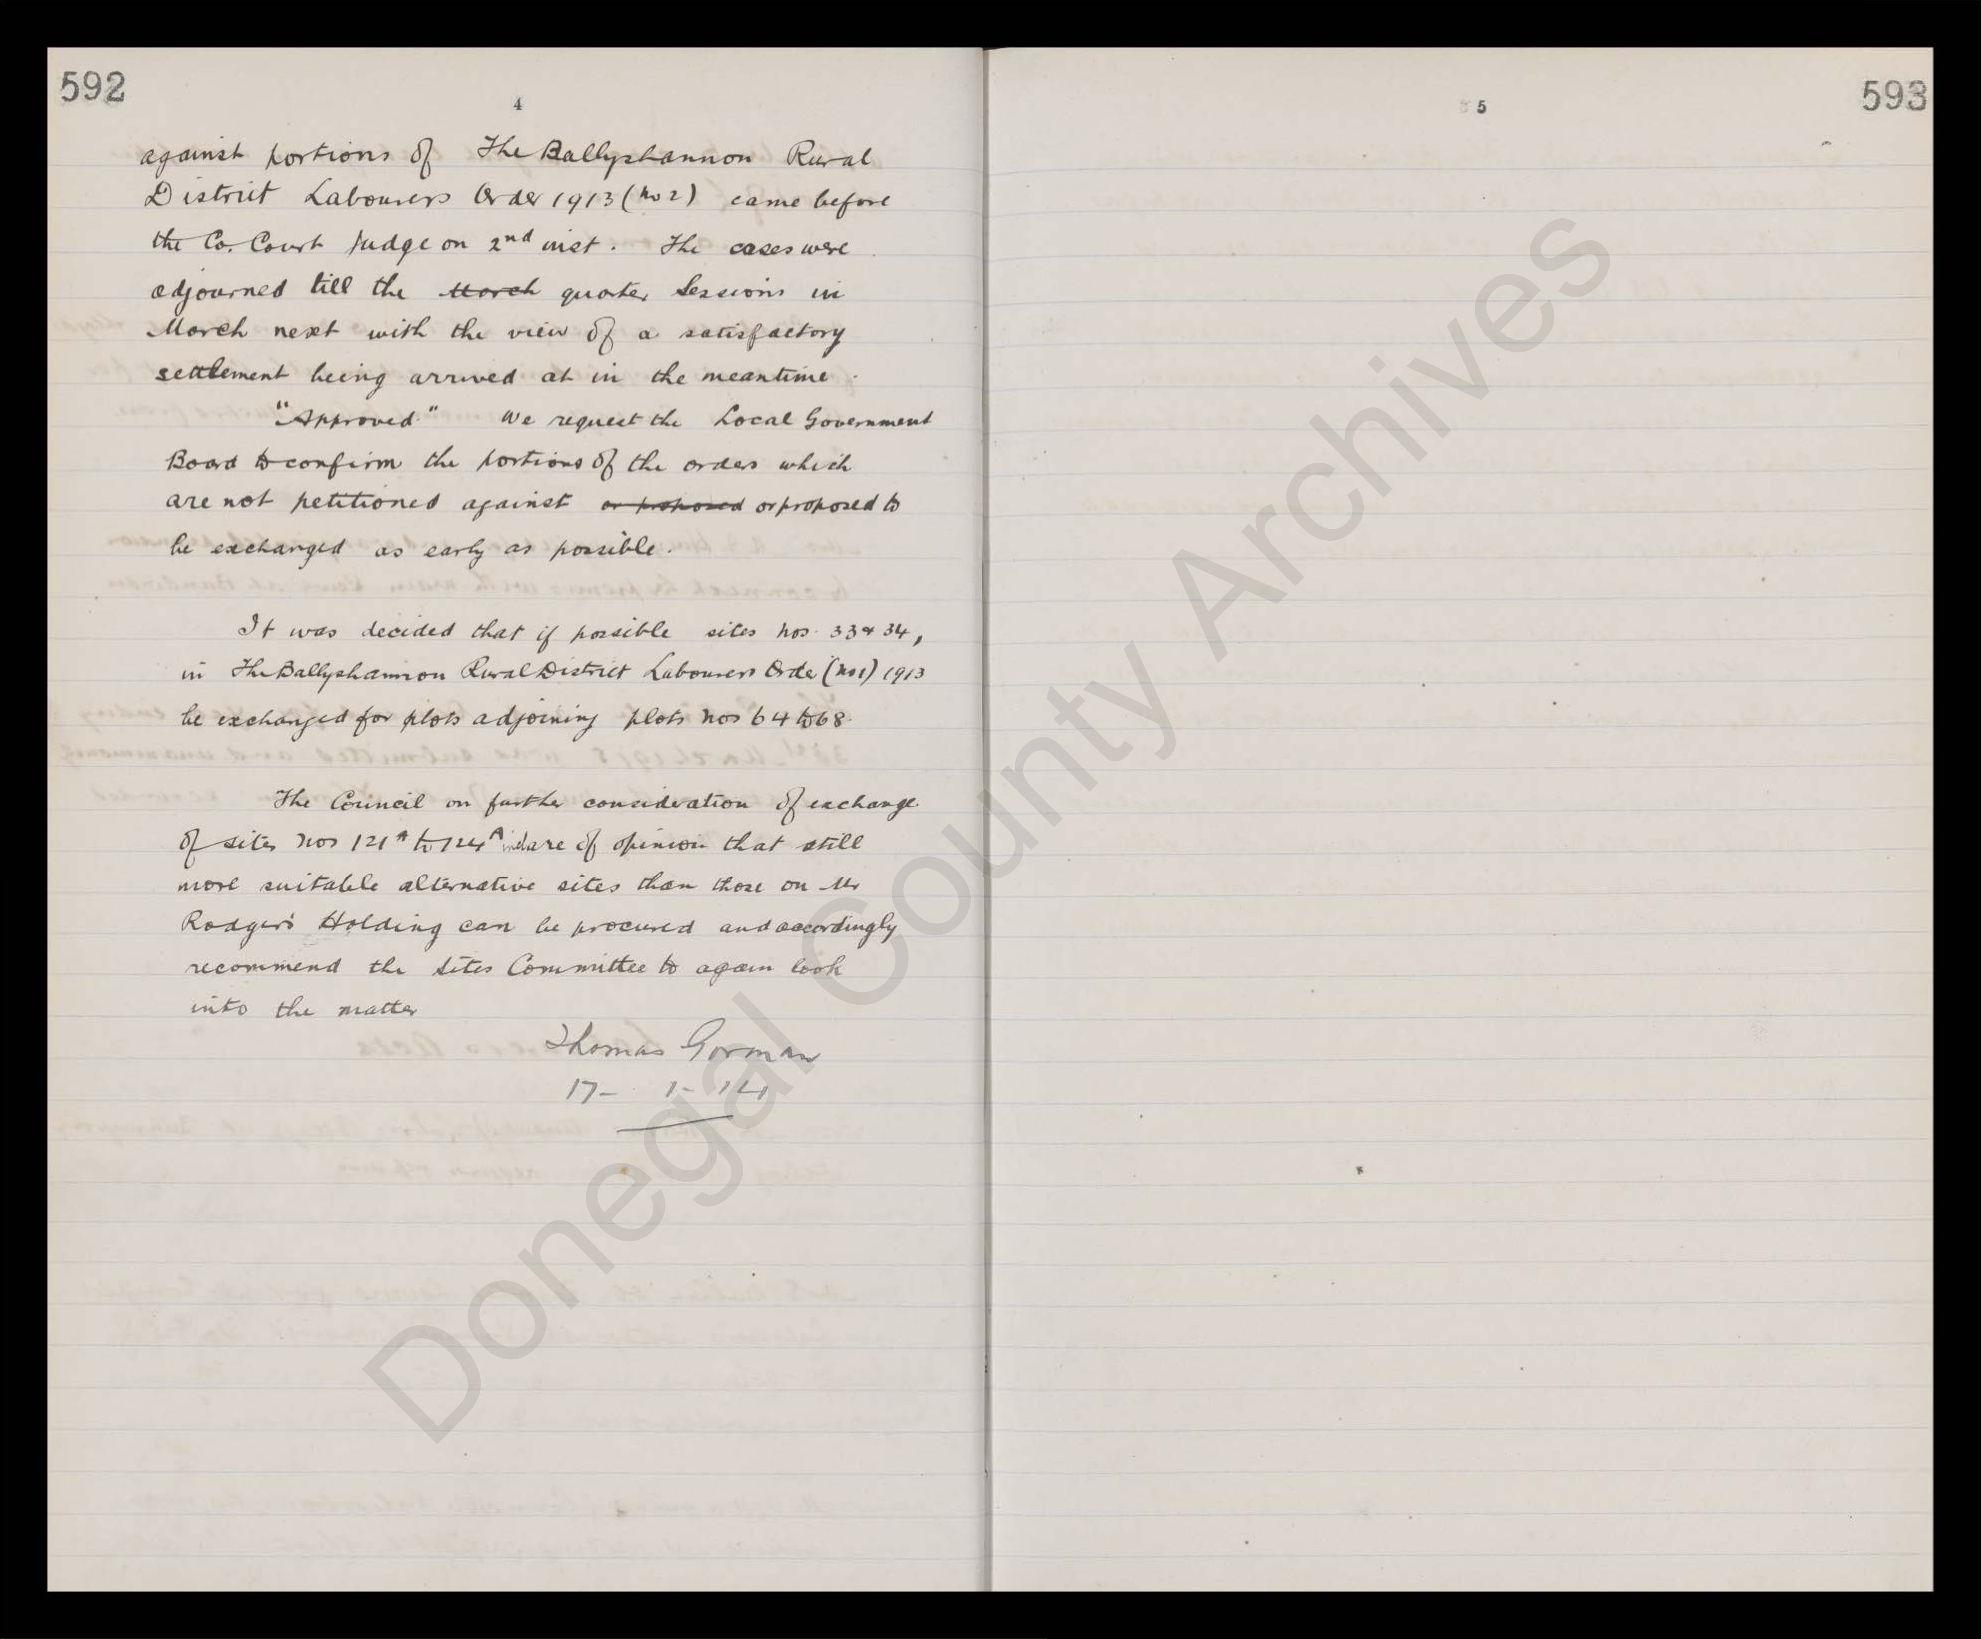 592
4
against portions of The Ballyshannon Rural
District Labourers Order 1913 (No 2) came before
the Co. Court Judge on 2nd inst. The cases were
adjourned till the March quarter Sessions in
March next with the view of a satisfactory
settlement being arrived at in the meantime.
"Approved." We request the Local Government
Board to confirm the portions of the orders which
are not petitioned against or proposed or proposed to
be exchanged as early as possible.
It was decided that if possible sites Nos. 33 & 34,
in The Ballyshannon Rural District Labourers Order (No 1) 1913
be exchanged for plots adjoining plots Nos 64 to 68.
The Council on further consideration of exchange
of sites Nos 121A to 124A are of opinion that still
more suitable alternative sites than those on Mr
Rodgers Holding can be procured and accordingly
recommend the Sites Committee to again look
into the matter
Thomas Gorman
17- 1- 14
5
593
Donegal County Archives